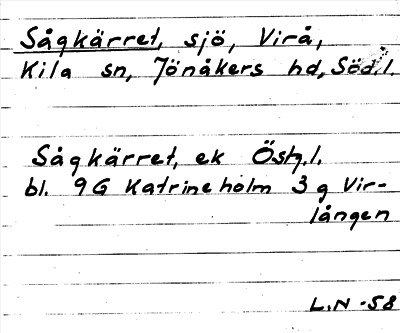 Sågkärret, sjö, Virå,
Kila sn, Jönåkers hd, Söd.l.
Sågkärret, ek Östg.l.
bl. 9G Katrineholm 3g Vir-
lången
L.N -58